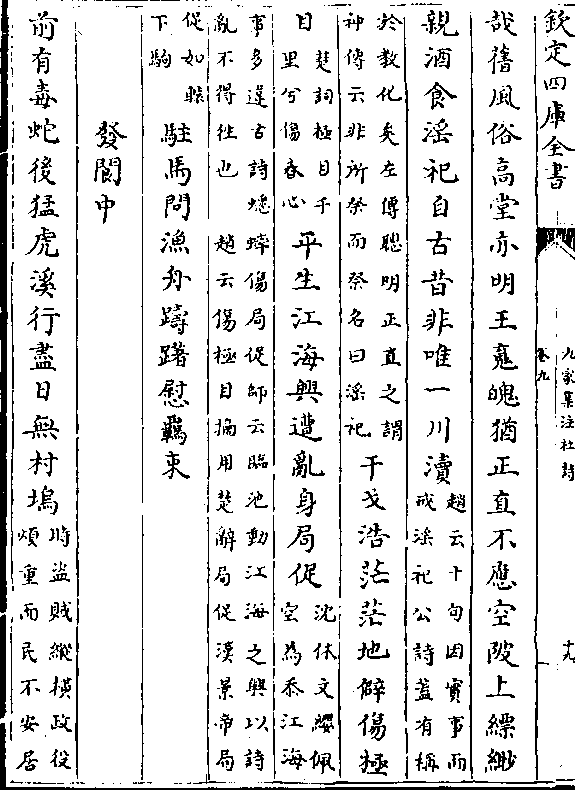 欽定四庫全書
九家集注杜詩
卷九
十九
哉舊風俗高堂亦明王䰟魄猶正直不應空陂上縹緲
親酒食淫祀自古昔非唯一川瀆
趙云十句因實事而
戒淫祀公詩蓋有稱
於教化矣左傳聰明正直之謂
神傳云非所祭而祭名曰淫祀
干戈浩茫茫地僻傷極
目
楚詞極目千
里兮傷春心
平生江海興遭亂身局促
沈休文纓佩
空為忝江海
事多違古詩蟋蟀傷局促師云臨池動江海之興以詩
亂不得往也 趙云傷極目摘用楚辭局促漢景帝局
促如轅
下駒
駐馬問漁舟躊躇慰羈束
發閬中
前有毒蛇後猛虎溪行盡日無村塢
時盜賊縱横政役
煩重而民不安居